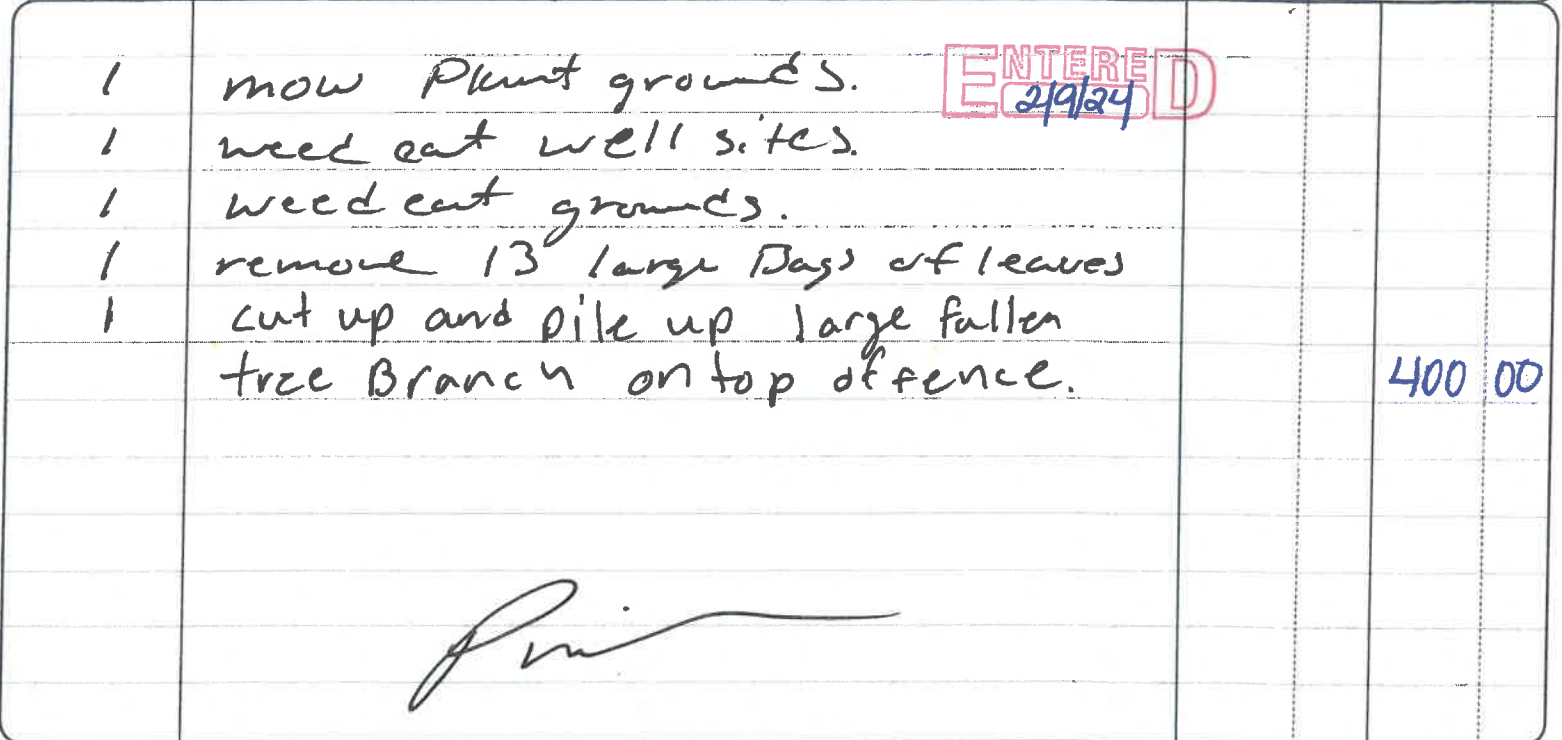 1 mow Plant grounds. ENTERED
2/9/24
1 weed eat well sites.
1 weed eat grounds.
1 remove 13 large Bags of leaves
1 cut up and pile up large fallen
tree Branch on top of fence. 400 00